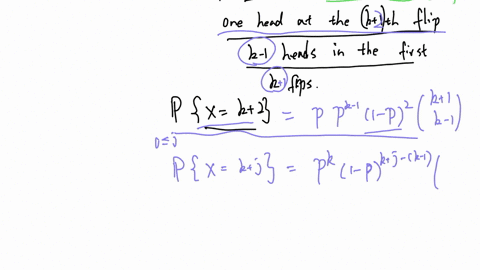 one head at the (k+2)th flip
k-1 heads in the first
k+1 flips.
P{X = k+2} = p p^{k-1} (1-p)^2 (k+1 k-1)
0 ≤ j
P{X = k+j} = p^k (1-p)^{k+j-(k-1)} (